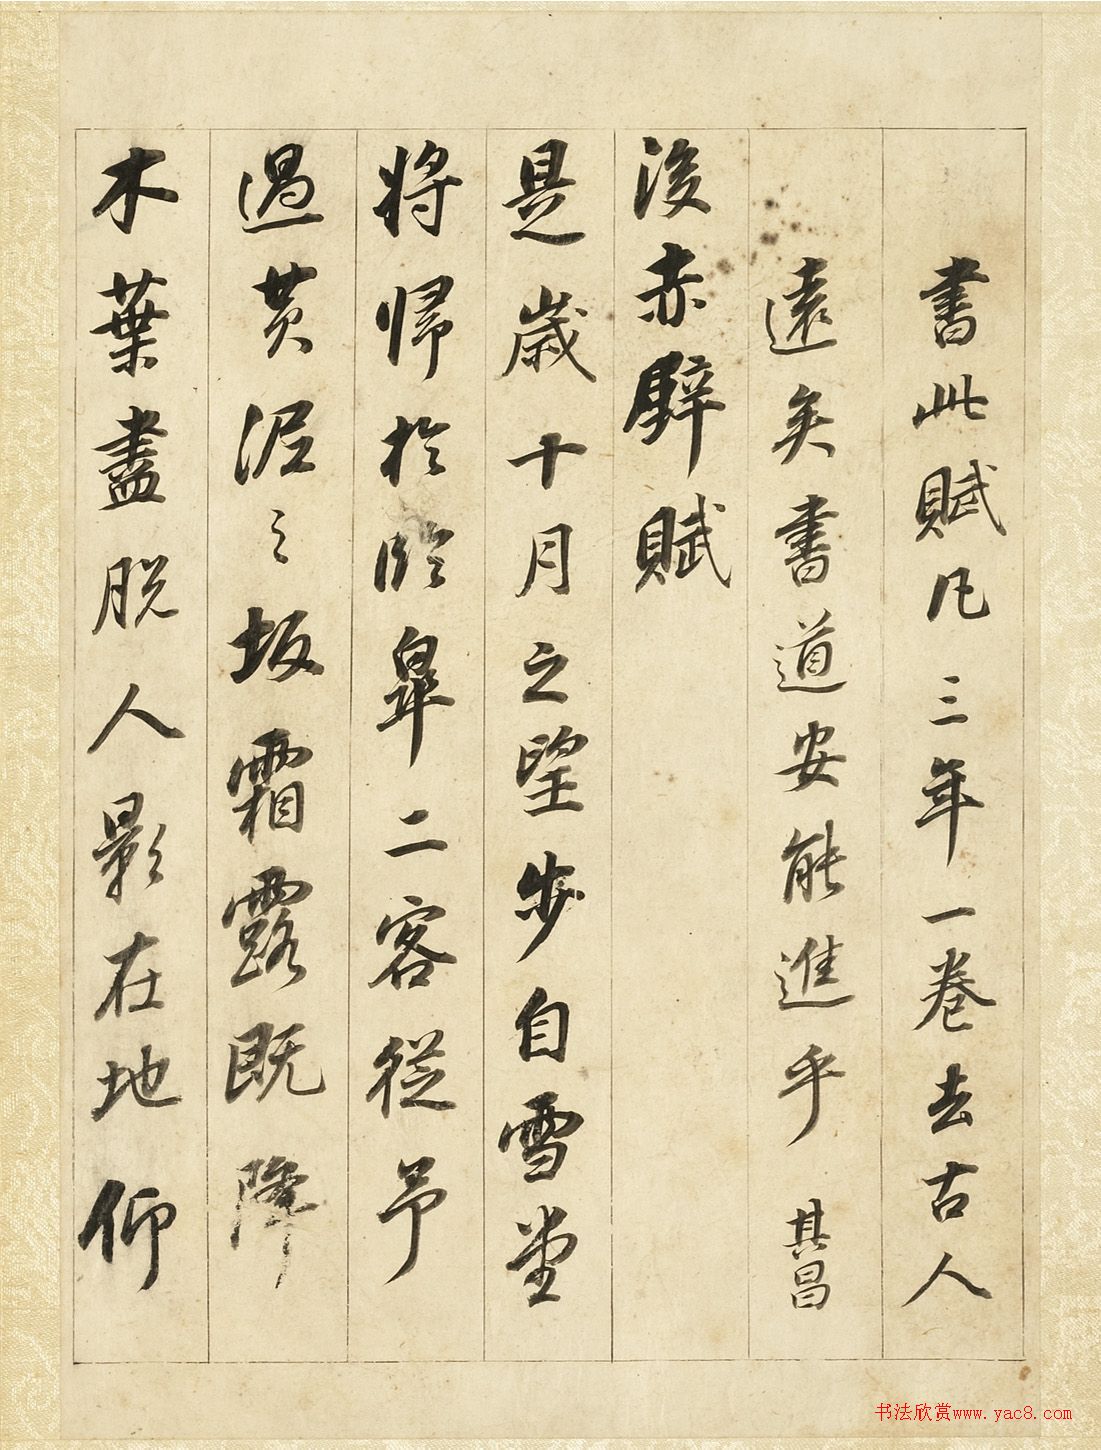 書此賦凡三年一卷去古人
遠矣書道安能進乎 其昌
後赤壁賦
是歲十月之望步自雪堂
將歸於臨皋二客從予
過黃泥之坂霜露既降
木葉盡脫人影在地仰
书法欣赏www.yac8.com